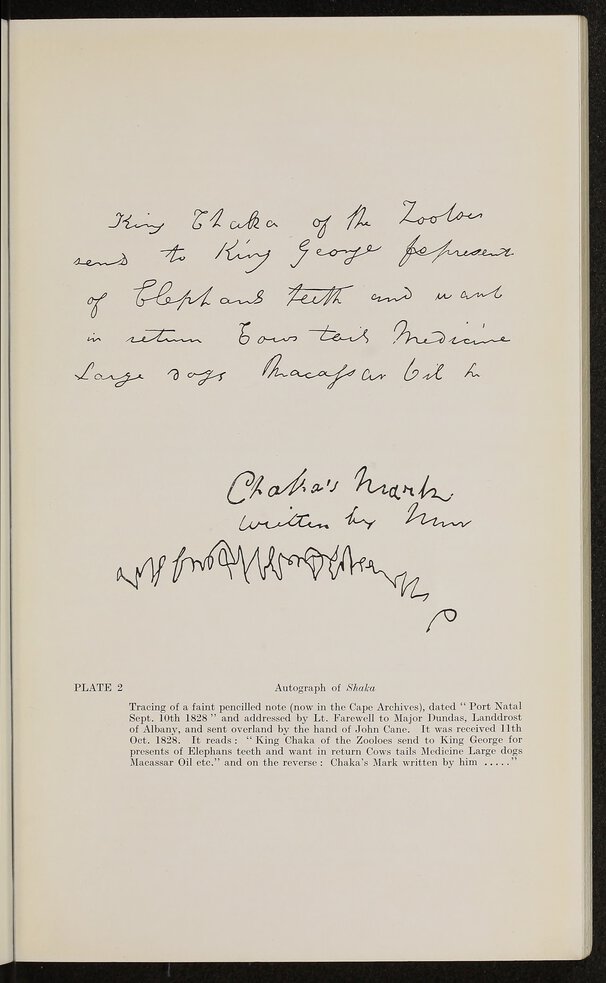 King Chaka of the Zooloes
send to King George for present
of Elephans teeth and want
in return Cows tails Medicine
Large dogs Macassar Oil &c
Chaka's Mark
written by him
PLATE 2
Autograph of Shaka
Tracing of a faint pencilled note (now in the Cape Archives), dated “ Port Natal
Sept. 10th 1828 ” and addressed by Lt. Farewell to Major Dundas, Landdrost
of Albany, and sent overland by the hand of John Cane. It was received 11th
Oct. 1828. It reads : “ King Chaka of the Zooloes send to King George for
presents of Elephans teeth and want in return Cows tails Medicine Large dogs
Macassar Oil etc.” and on the reverse : Chaka's Mark written by him .....”